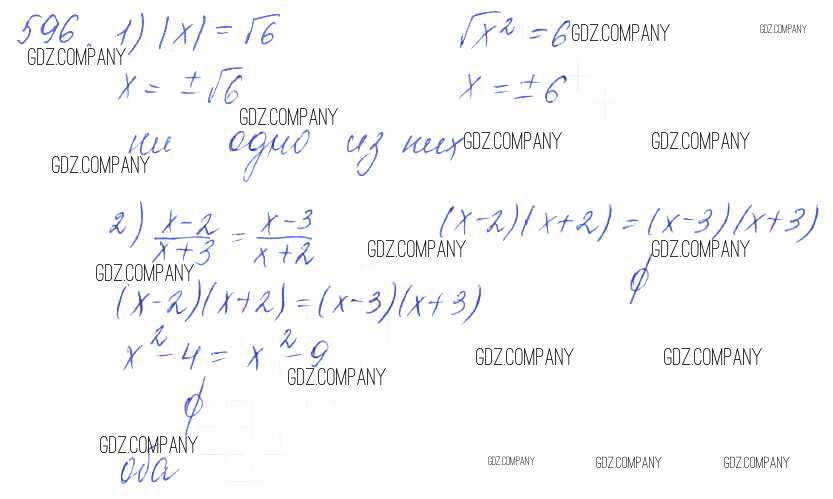 596. 1) |x| = √6 √x² = 6 GDZ.COMPANY GDZ.COMPANY
GDZ.COMPANY
x = ±√6 x = ±6
GDZ.COMPANY
ни одно из них GDZ.COMPANY GDZ.COMPANY
GDZ.COMPANY
2) (x-2)/(x+3) = (x-3)/(x+2) (x-2)(x+2) = (x-3)(x+3)
GDZ.COMPANY GDZ.COMPANY
GDZ.COMPANY ∅
(x-2)(x+2) = (x-3)(x+3)
x² - 4 = x² - 9 GDZ.COMPANY GDZ.COMPANY
GDZ.COMPANY
∅
GDZ.COMPANY
оба GDZ.COMPANY GDZ.COMPANY GDZ.COMPANY